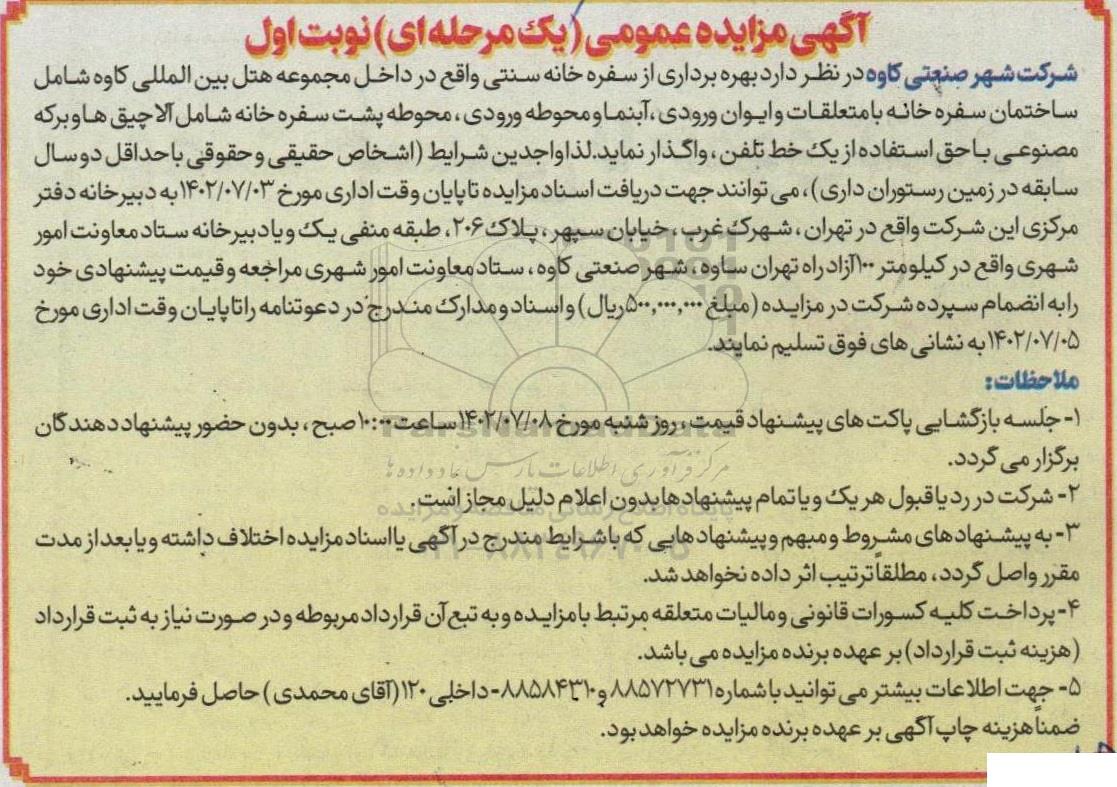 آگهی مزایده عمومی (یک مرحله ای) نوبت اول
شرکت شهر صنعتی کاوه در نظر دارد بهره برداری از سفره خانه سنتی واقع در داخل مجموعه هتل بین المللی کاوه شامل
ساختمان سفره خانه با متعلقات و ایوان ورودی، آبنما و محوطه ورودی، محوطه پشت سفره خانه شامل آلاچیق ها و برکه
مصنوعی با حق استفاده از یک خط تلفن، واگذار نماید. لذا واجدین شرایط (اشخاص حقیقی و حقوقی با حداقل دو سال
سابقه در زمین رستوران داری)، می توانند جهت دریافت اسناد مزایده تا پایان وقت اداری مورخ ۱۴۰۲/۰۷/۰۳ به دبیرخانه دفتر
مرکزی این شرکت واقع در تهران، شهرک غرب، خیابان سپهر، پلاک ۲۰۶، طبقه منفی یک و یا دبیرخانه ستاد معاونت امور
شهری واقع در کیلومتر ۱۰۰ آزاد راه تهران ساوه، شهر صنعتی کاوه، ستاد معاونت امور شهری مراجعه و قیمت پیشنهادی خود
را به انضمام سپرده شرکت در مزایده (مبلغ ۵۰۰,۰۰۰,۰۰۰ ریال) و اسناد و مدارک مندرج در دعوتنامه را تا پایان وقت اداری مورخ
۱۴۰۲/۰۷/۰۵ به نشانی های فوق تسلیم نمایند.
ملاحظات:
۱- جلسه بازگشایی پاکت های پیشنهاد قیمت، روز شنبه مورخ ۱۴۰۲/۰۷/۰۸ ساعت ۱۰:۰۰ صبح، بدون حضور پیشنهاد دهندگان
برگزار می گردد.
مرکز فرآوری اطلاعات پارس نماد داده ها
۲- شرکت در رد یا قبول هر یک و یا تمام پیشنهادها بدون اعلام دلیل مجاز است.
پایگاه اطلاع رسانی مناقصه و مزایده
۳- به پیشنهادهای مشروط و مبهم و پیشنهادهایی که با شرایط مندرج در آگهی یا اسناد مزایده اختلاف داشته و یا بعد از مدت
مقرر واصل گردد، مطلقاً ترتیب اثر داده نخواهد شد.
۴- پرداخت کلیه کسورات قانونی و مالیات متعلقه مرتبط با مزایده و به تبع آن قرارداد مربوطه و در صورت نیاز به ثبت قرارداد
(هزینه ثبت قرارداد) بر عهده برنده مزایده می باشد.
۵- جهت اطلاعات بیشتر می توانید با شماره ۸۸۵۷۲۷۳۱ و ۸۸۵۸۴۳۱۰- داخلی ۱۲۰ (آقای محمدی) حاصل فرمایید.
ضمناً هزینه چاپ آگهی بر عهده برنده مزایده خواهد بود.